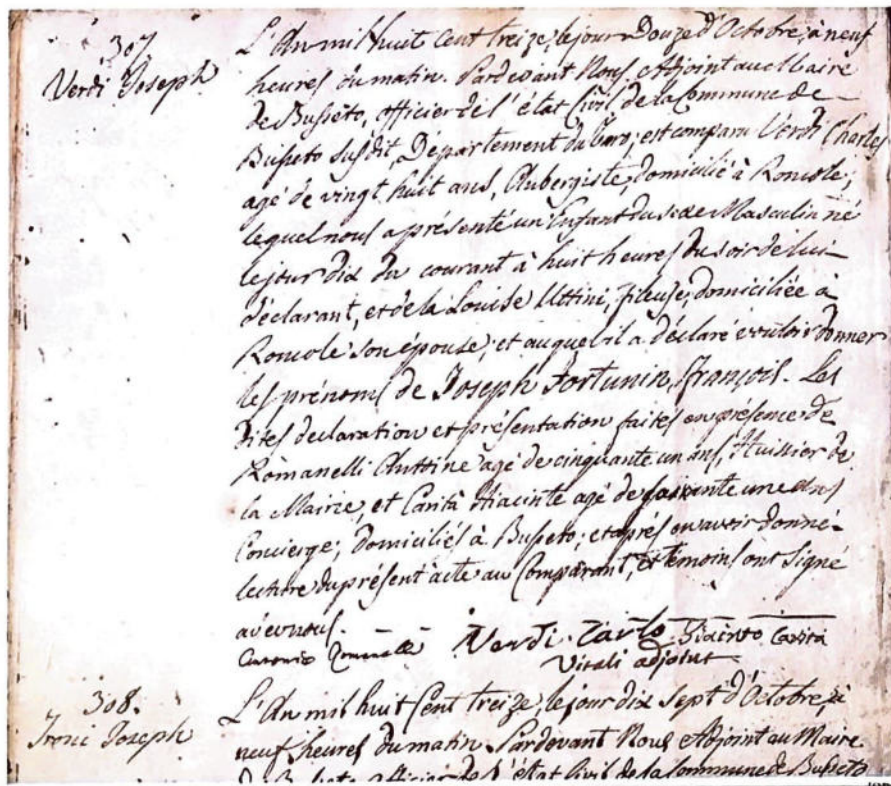 307
Verdi Joseph
L'An mil huit Cent treize, le jour Douze d'Octobre, à neuf
heures du matin. Pardevant Nous, Adjoint au Maire
de Busseto, officier de l'état Civil de la Commune de
Busseto susdit, Département du Taro; est comparu Verdi Charles
agé de vingt huit ans, Aubergiste, domicilié à Roncole;
lequel nous a présenté un Enfant du sexe Masculin né
le jour dix du courant à huit heures du soir de lui
déclarant, et de la Louise Uttini, fileuse, domiciliée à
Roncole son épouse; et auquel il a déclaré vouloir donner
les prénoms de Joseph Fortunin, François. Les
dites declaration et présentation faites en présence de
Romanelli Antoine agé de cinquante un ans, Huissier de
la Mairie, et Carità Hiacinte agé de soixante une ans
Concierge; domiciliés à Busseto; et aprés en avoir donné
lecture du présent acte au Comparant, et témoins ont signé
avec nous.
Antonio Romanelli Verdi Carlo Giacinto Carità
Vitali adjoint
308.
Joseph
L'An mil huit Cent treize, le jour dix Sept d'Octobre, à
neuf heures du matin. Pardevant Nous Adjoint au Maire
de Busseto officier de l'état Civil de la Commune de Busseto